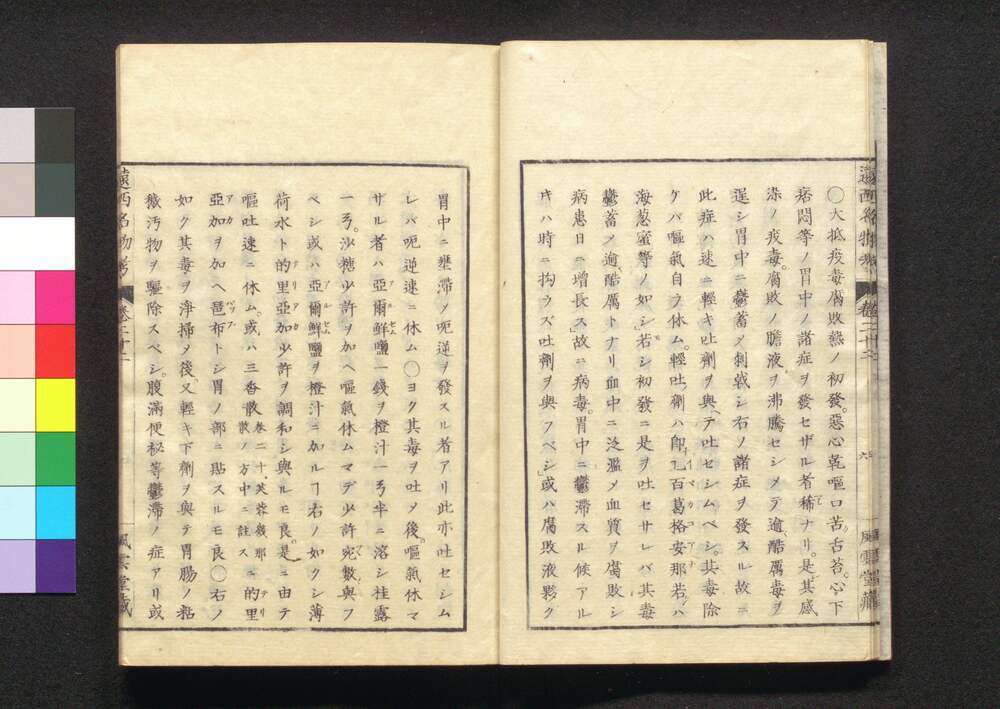 〇大抵疫毒腐敗熱ノ初發。惡心乾嘔口苦。舌苔。心下
痞悶等ノ胃中ノ諸症ヲ發セザル者稀ナリ。是其感
染ノ疫毒。腐敗ノ膽液ヲ沸騰セシメテ逾酷厲毒ヲ
逞シ胃中ニ鬱蓄メ刺戟シ右ノ諸症ヲ發スル故ニ
此症ハ速ニ輕キ吐劑ヲ與ヘテ吐セシムベシ。其毒除
ケバ嘔氣自ラ休ム。輕吐劑ハ即乙百葛格安那若ハ
海葱蜜等ノ如シ若シ初發ニ是ヲ吐セサレバ其毒
鬱蓄メ逾酷厲トナリ血中ニ泛濫メ血質ヲ腐敗シ
病患日ニ增長ス故ニ病毒。胃中ニ鬱滯スル候アル
キハ時ニ拘ラズ吐劑ヲ與フベシ或ハ腐敗液夥ク
遠西名物考 卷二十二
六
風雲堂藏
胃中ニ壅滯ノ呃逆ヲ發スル者アリ此亦吐セシム
レバ呃逆速ニ休ム〇ヨク其毒ヲ吐メ後。嘔氣休マ
サル者ハ亞爾鮮鹽一錢ヲ橙汁一弓半ニ溶シ桂露
一弓。沙糖少許ヲ加ヘ嘔氣休ムマデ少許宛數與フ
ベシ或ハ亞爾鮮鹽ヲ橙汁ニ加ルヿ右ノ如クシ薄
荷水ト的里亞加少許ヲ調和シ與ルモ良。是ニ由テ
嘔吐速ニ休ム。或ハ三香散卷二十。芙蓉幾那散ノ方中ニ註ス ニ的里
亞加ヲ加ヘ琶布トシ胃ノ部ニ貼スルモ良〇右ノ
如ク其毒ヲ淨掃メ後又輕キ下劑ヲ與テ胃腸ノ粘
黴汚物ヲ驅除スベシ。腹滿便秘等鬱滯ノ症アリ或
遠西名物考 卷二十二
風雲堂藏